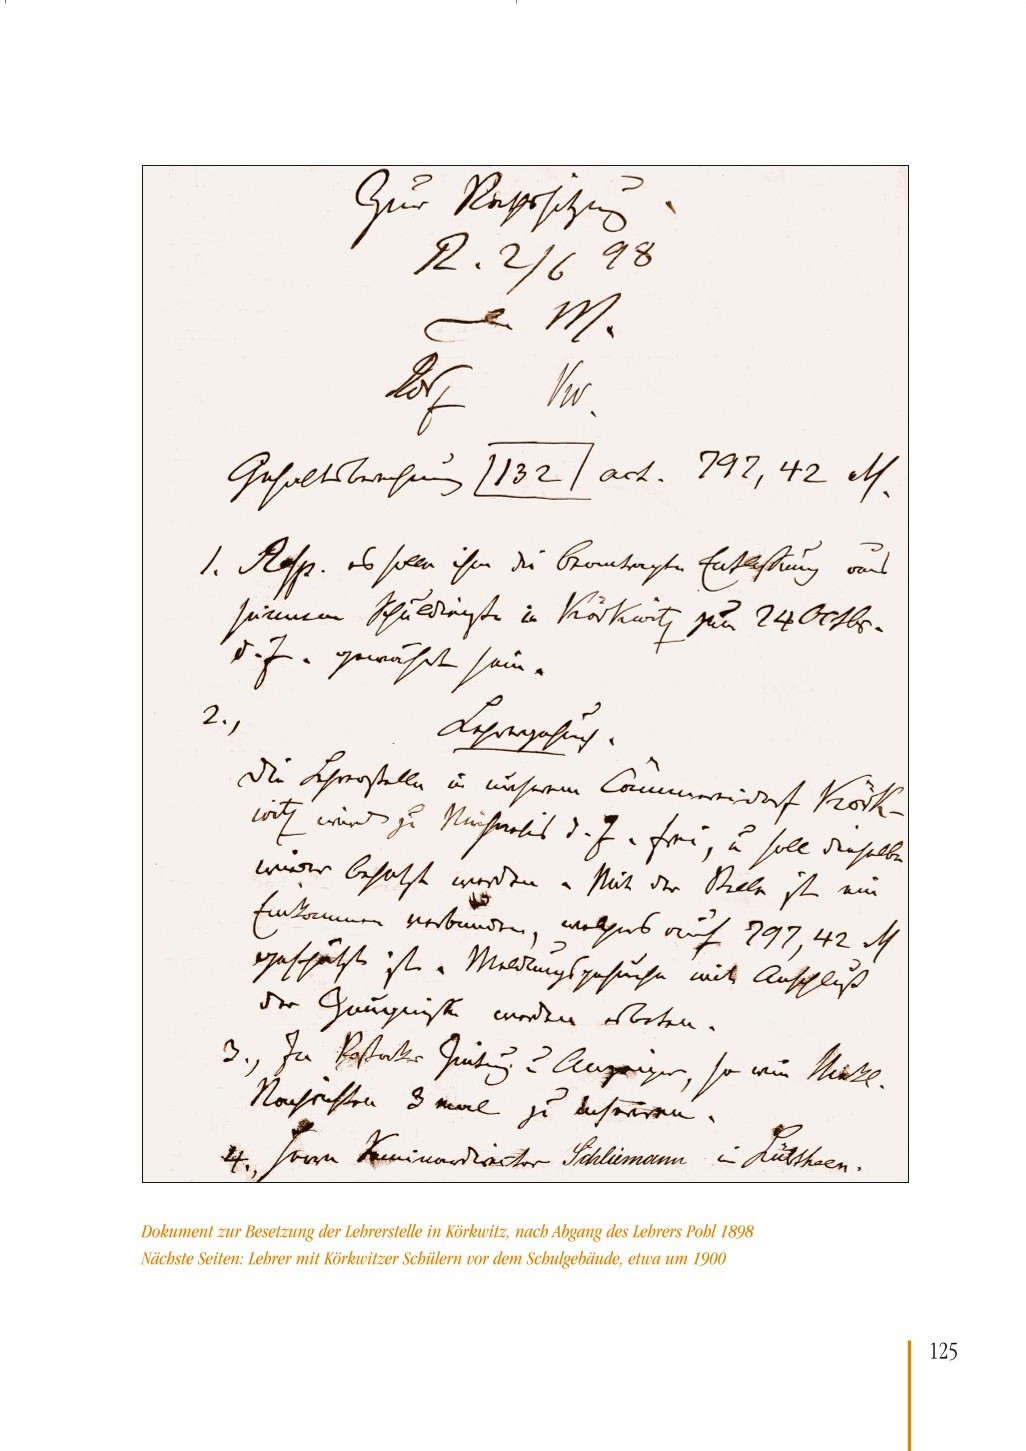 Zur Rathssitzung
R. 2/6 98
M.
Kw.
Gehaltsberechnung [132] act. 797,42 M.
1. Resp. es solle ihm die beantragte Entlassung aus
seinem Schuldienste in Körkwitz zum 24 Octbr.
d. J. gewährt sein.
2., Lehrergesuch.
Die Lehrerstelle in unserem Cämmereidorf Körk-
witz wird zu Michaelis d. J. frei, u soll dieselbe
wieder besetzt werden. Mit der Stelle ist ein
Einkommen verbunden, welches auf 797,42 M
geschätzt ist. Meldungsgesuche mit Anschluß
der Zeugniße werden erbeten.
3., In Rostocker Zeitung u Anzeiger, so wie Meckl.
Nachrichten 3 mal zu inseriren.
4., Herrn Seminardirector Schliemann in Lübtheen.
Dokument zur Besetzung der Lehrerstelle in Körkwitz, nach Abgang des Lehrers Pohl 1898
Nächste Seiten: Lehrer mit Körkwitzer Schülern vor dem Schulgebäude, etwa um 1900
125